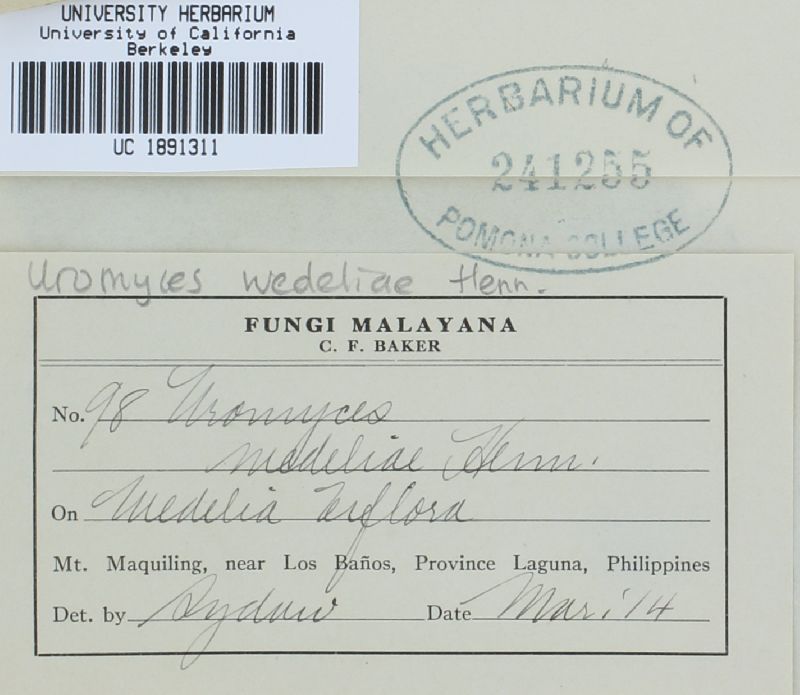 UNIVERSITY HERBARIUM
University of California
Berkeley
UC 1891311
HERBARIUM OF
241255
POMONA COLLEGE
Uromyces wedeliae Henn.
FUNGI MALAYANA
C. F. BAKER
No. 98 Uromyces
wedeliae Henn.
On Wedelia biflora
Mt. Maquiling, near Los Baños, Province Laguna, Philippines
Det. by Sydow Date Mar. '14